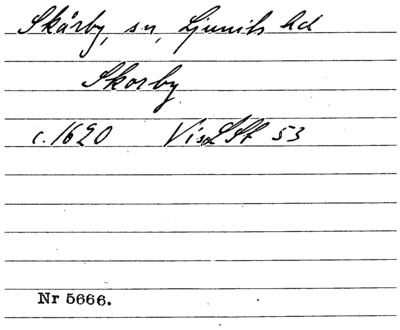 Skårby, sn, Ljunits hd
Skorby
c. 1620 Vis. LSt 53
Nr 5666.